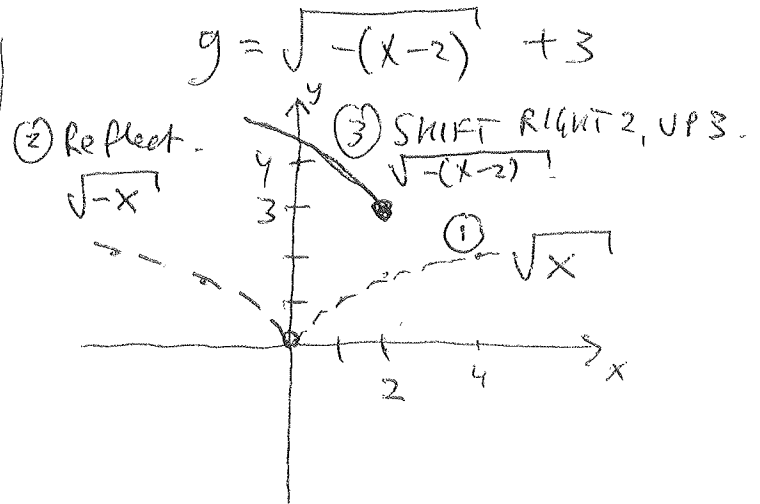 y = √-(x-2) + 3
y
② Reflect.
√-x
③ SHIFT RIGHT 2, UP 3.
√-(x-2)
4
3
① √x
2
4
x